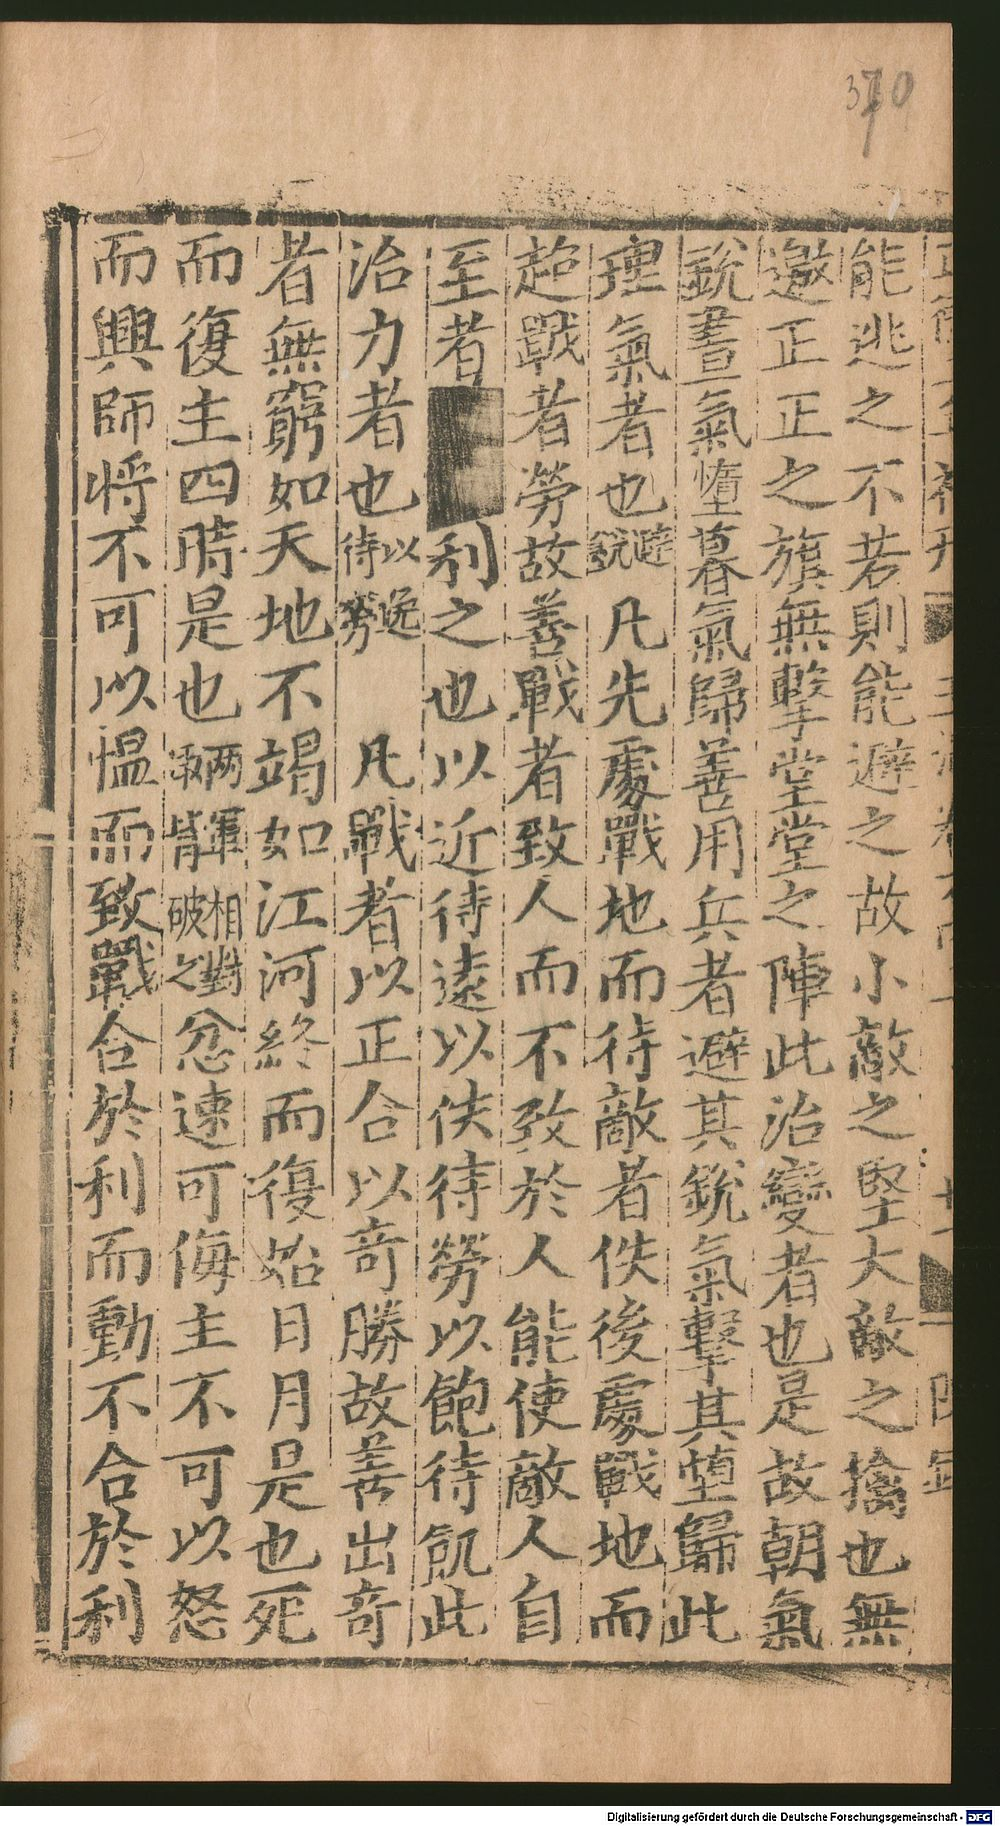 370
能逃之不若則能避之故小敵之堅大敵之擒也無
邀正正之旗無擊堂堂之陣此治變者也是故朝氣
銳晝氣墮暮氣歸善用兵者避其銳氣擊其墮歸此
理氣者也避銳 凡先處戰地而待敵者佚後處戰地而
趍戰者勞故善戰者致人而不致於人能使敵人自
至者利之也以近待遠以佚待勞以飽待飢此
治力者也以逸待勞 凡戰者以正合以奇勝故善出奇
者無窮如天地不竭如江河終而復始日月是也死
而復主四時是也兩軍相對輒背破之忿速可侮主不可以怒
而興師將不可以慍而致戰合於利而動不合於利
Digitalisierung gefördert durch die Deutsche Forschungsgemeinschaft - DFG